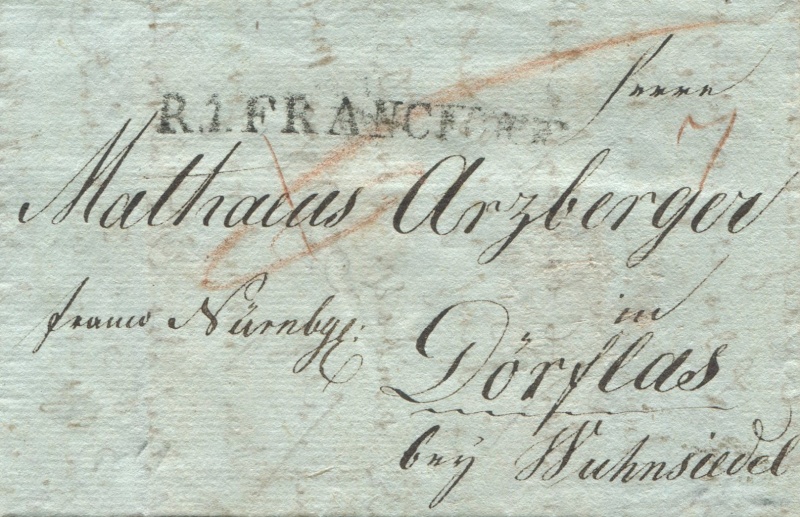 Herrn
R.1.FRANCFORT
7
Mathaeus Arzberger
franco Nürnbg:
in
Dörflas
bey Wuhnsiedel